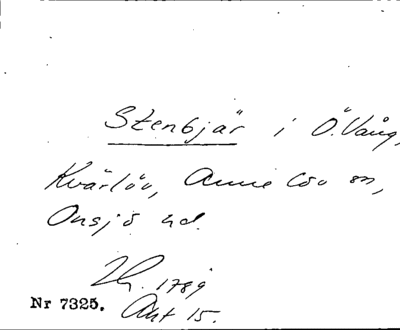 Stenbjär i Ö. Vång,
Kvärlöv, Annelöv sn,
Onsjö hd.
1789
Nr 7325. Akt 15.